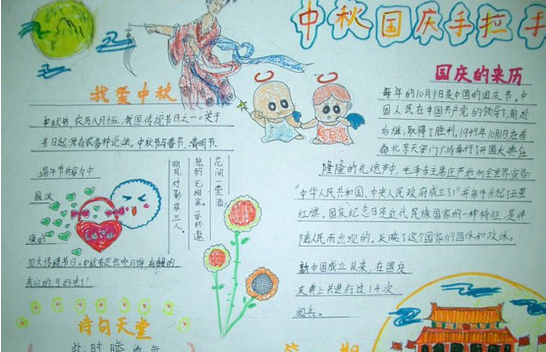 中秋国庆手拉手
我爱中秋
中秋节,农历八月十五,我国传统节日之一。关于
节日起源有很多种说法,中秋节与春节、清明节、
端午节并称为中
国汉
族的
四大传统节日。
花间一壶酒,
独酌无相亲。举杯邀
明月,对影成三人。
诗句天堂
国庆的来历
每年的10月1日是中国的国庆节。中
国人民在中国共产党的领导下前赴
后继,取得了胜利。1949年10月1日在首
都北京天安门广场举行了开国大典在
隆隆的礼炮声中,毛主席庄严地向全世界宣告
“中华人民共和国,中央人民政府成立了!”并亲手升起了五星
红旗。国庆纪念日是近代民族国家的一种特征,是伴
随人民而出现的,反映了这个国家的国体和政体。
新中国成立以来,在国庆
庆典上共进行过14次
阅兵。